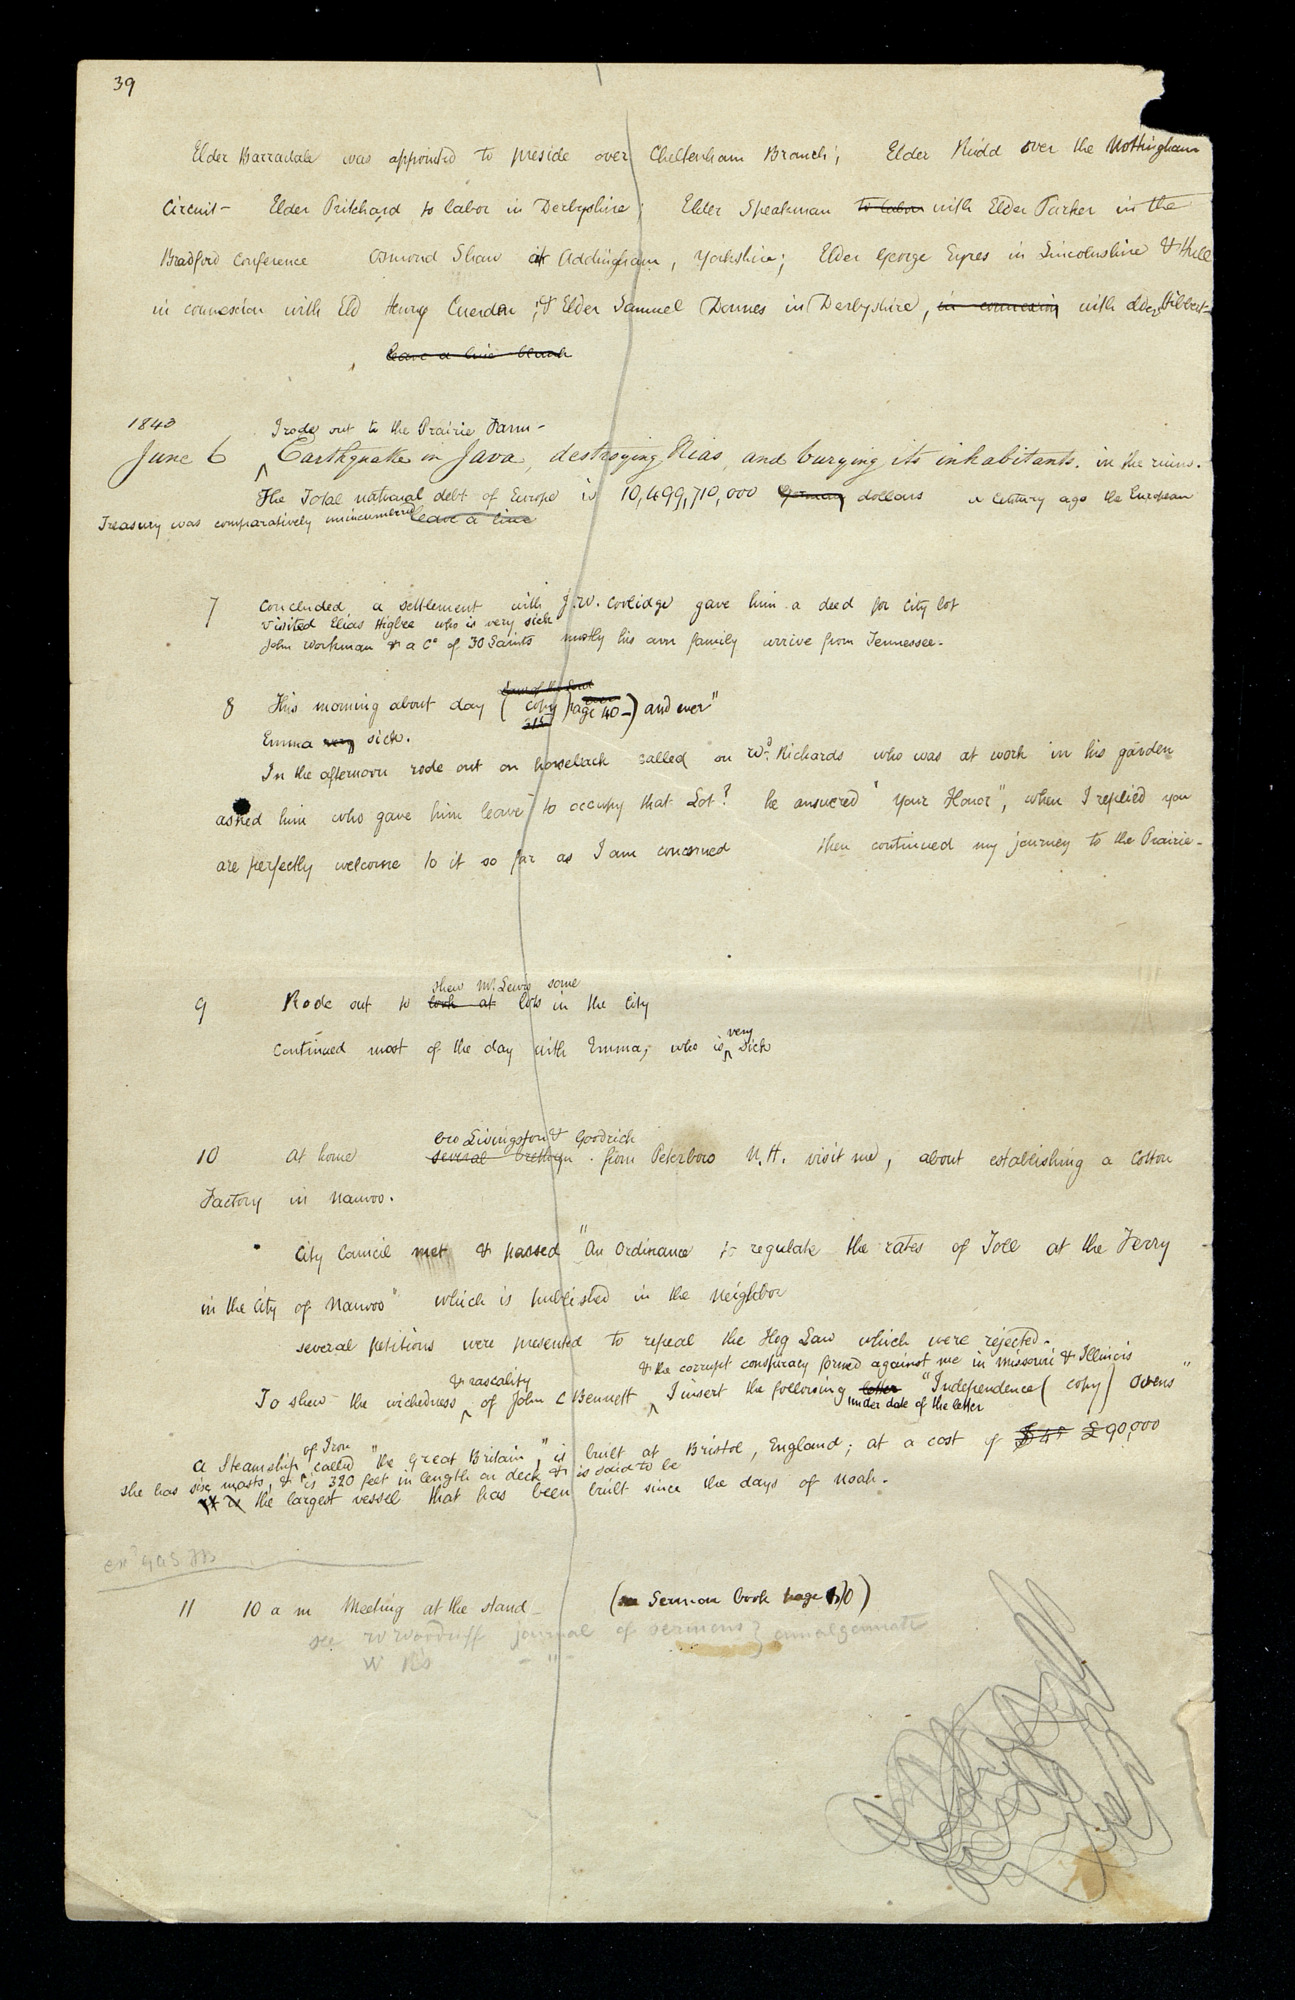 39
Elder Barradale was appointed to preside over Cheltenham Branch; Elder Rudd over the Nottingham
Circuit – Elder Pritchard to labor in Derbyshire; Elder Speakman to labor with Elder Parker in the
Bradford Conference Osmond Shaw at Addingham, Yorkshire; Elder George Eyres in Lincolnshire & Hull
in connexion with Eld Henry Cuerden; & Elder Samuel Downes in Derbyshire, in connexion with elder Hibbert
leave a line blank
1843 I rode out to the Prairie Farm –
June 6 Earthquake in Java, destroying Nias, and burying its inhabitants. in the ruins.
The Total national debt of Europe is 10,499,710,000 German dollars a century ago the European
Treasury was comparatively unincumbered leave a line
7 Concluded a settlement with J. W. Coolidge gave him a deed for City lot
visited Elias Higbee who is very sick
John Workman & a Co of 30 Saints mostly his own family arrive from Tennessee.
8 This morning about day (copy page 40 –) and ever"
Emma very sick.
In the afternoon rode out on horseback called on Wd. Richards who was at work in his garden
asked him who gave him leave to occupy that Lot? he answered "Your Honor", when I replied you
are perfectly welcome to it so far as I am concerned then continued my journey to the Prairie –
shew Mr. Lewis some
9 Rode out to look at lots in the City
very
Continued most of the day with Emma, who is sick
bro Livingston & Goodrich
10 at home several brethren from Peterboro N. H. visit me, about establishing a Cotton
Factory in Nauvoo.
City Council met & passed "An Ordinance to regulate the rates of Toll at the Ferry
in the City of Nauvoo" which is published in the Neighbor
several petitions were presented to repeal the Hog Law which were rejected.
& rascality & the corrupt conspiracy formed against me in Missouri & Illinois
To shew the wickedness of John C Bennett I insert the following letter "Independence (copy) Owens"
under date of the letter
of Iron
A Steamship called "the Great Britain", is built at Bristol, England; at a cost of £90,000
she has six masts, & is 320 feet in length on deck & is said to be
It is the largest vessel that has been built since the days of Noah.
11 10 a m Meeting at the stand – (Sermon book page)
see W Woodruff journal of sermons } amalgamate
W R's – " –